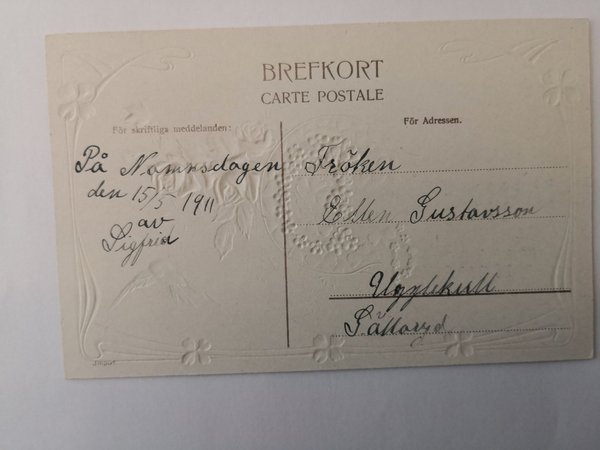 BREFKORT
CARTE POSTALE
För skriftliga meddelanden:
För Adressen.
På Namnsdagen
den 15/5 1911
av
Sigfrid
Fröken
Ellen Gustavsson
Ugglekull